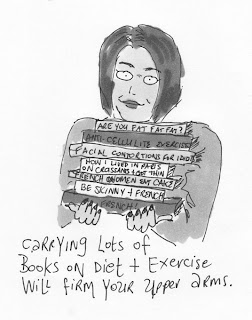 ARE YOU FAT FAT FAT?
ANTI-CELLULITE EXERCISE
FACIAL CONTORTIONS FOR
HOW I LIVED IN PARIS
ON CROISSANTS + GOT THIN
FRENCH WOMEN EAT CAKE
BE SKINNY + FRENCH
FRENCH!
CARRYING LOTS OF
BOOKS ON DIET + EXERCISE
WILL FIRM YOUR UPPER ARMS.